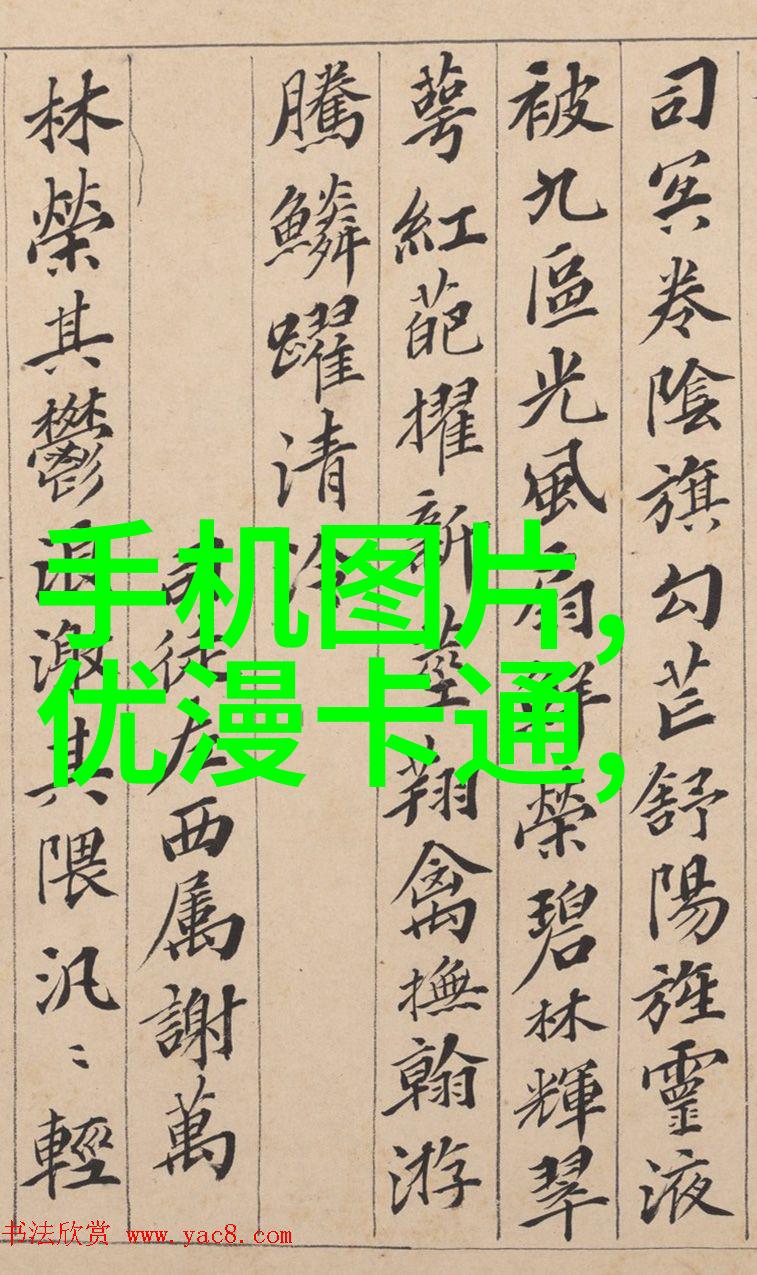 司冥卷陰旗勾芒舒陽旌靈液
被九區光風扇鮮榮碧林輝翠
萼紅葩擢新莖翔禽撫翰游
騰鱗躍清泠
司徒左西属謝萬
林榮其鬱浪激其隈汎〻輕
手机图片,
优漫卡通,
书法欣赏 www.yac8.com